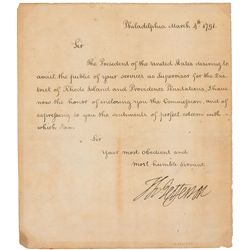 Philadelphia March 4th 1791.
Sir
The President of the United States desiring to
avail the public of your services as Supervisor for the Dis
trict of Rhode Island and Providence Plantations, I have
now the honor of enclosing you the Commission, and of
expressing to you the sentiments of perfect esteem with
which I am
Sir
Your most obedient and
most humble servant
Th: Jefferson